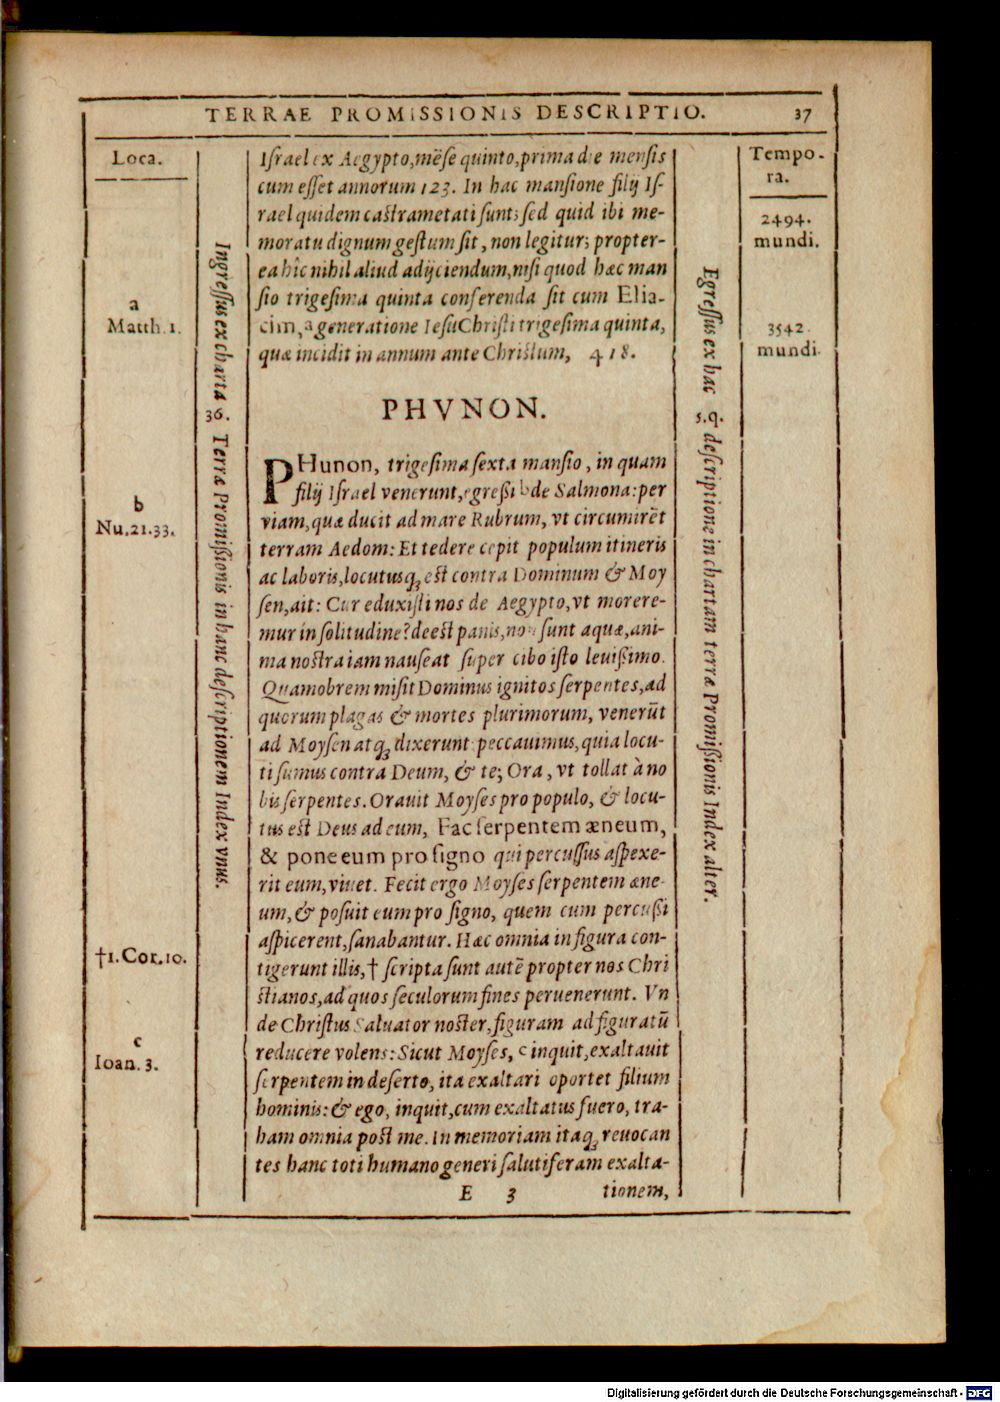 TERRAE PROMISSIONIS DESCRIPTIO. 37
Loca.
a
Matth. 1.
b
Nu.21.33.
†1.Cor.10.
c
Ioan. 3.
Ingreſſus ex charta 36. Terræ Promiſſionis in hanc deſcriptionem Index vnus.
Iſrael ex Aegypto, mẽſe quinto, prima die menſis
cum eſſet annorum 123. In hac manſione filij Iſ-
rael quidem caſtrametati ſunt; ſed quid ibi me-
moratu dignum geſtum ſit, non legitur; propter-
ea hîc nihil aliud adijciendum, niſi quod hæc man
ſio trigeſima quinta conferenda ſit cum Elia-
cim, a generatione Ieſu Chriſti trigeſima quinta,
quæ incidit in annum ante Chriſtum, 418.
PHVNON.
PHunon, trigeſima ſexta manſio, in quam
filij Iſrael venerunt, egreßi b de Salmona: per
viam, quæ ducit ad mare Rubrum, vt circumirẽt
terram Aedom: Et tedere cepit populum itineris
ac laboris, locutusq́ꝫ est contra Dominum & Moy
ſen, ait: Cur eduxiſti nos de Aegypto, vt morere-
mur in ſolitudine? deest panis, non ſunt aquæ, ani-
ma noſtra iam nauſeat ſuper cibo iſto leuißimo.
Quamobrem miſit Dominus ignitos ſerpentes, ad
quorum plagas & mortes plurimorum, venerũt
ad Moyſen atqꝫ dixerunt peccauimus, quia locu-
ti ſumus contra Deum, & te; Ora, vt tollat à no
bis ſerpentes. Orauit Moyſes pro populo, & locu-
tus est Deus ad eum, Fac ſerpentem æneum,
& pone eum pro ſigno qui percuſſus aſpexe-
rit eum, viuet. Fecit ergo Moyſes ſerpentem æne-
um, & poſuit eum pro ſigno, quem cum percußi
aſpicerent, ſanabantur. Hæc omnia in figura con-
tigerunt illis, † ſcripta ſunt autẽ propter nos Chri
ſtianos, ad quos ſeculorum fines peruenerunt. Vn
de Chriſtus Saluator noſter, figuram ad figuratũ
reducere volens: Sicut Moyſes, c inquit, exaltauit
ſerpentem in deſerto, ita exaltari oportet filium
hominis: & ego, inquit, cum exaltatus fuero, tra-
ham omnia post me. In memoriam itaqꝫ reuocan
tes hanc toti humano generi ſalutiferam exalta-
E 3 tionem,
Egreſſus ex hac 5. q. deſcriptione in chartam terræ Promißionis Index alter.
Tempo-
ra.
2494.
mundi.
3542.
mundi.
Digitalisierung gefördert durch die Deutsche Forschungsgemeinschaft - DFG